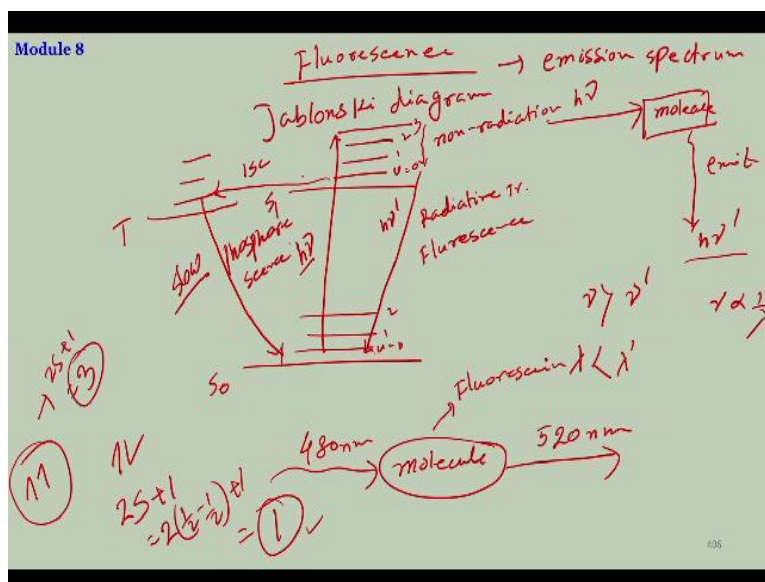 Module 8
Fluorescence → emission spectrum
Jablonski diagram
non-radiation hν → molecule
emit
hν'
ISC
3
2
1
v=0
S1
T
hν'
Radiative Tr.
Flurescence
slow
Phosphore
scence
hν
2
1
v=0
S0
ν > ν'
ν ∝ 1/λ
Fluorescein λ < λ'
2S+1
3
480nm
molecule
520 nm
↑↑
↑↓
2S+1
=2(1/2-1/2)+1
= 1 ✓
406